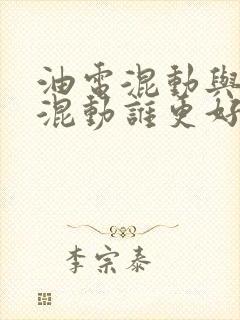 油電混動與
混動誰更好
李宗泰